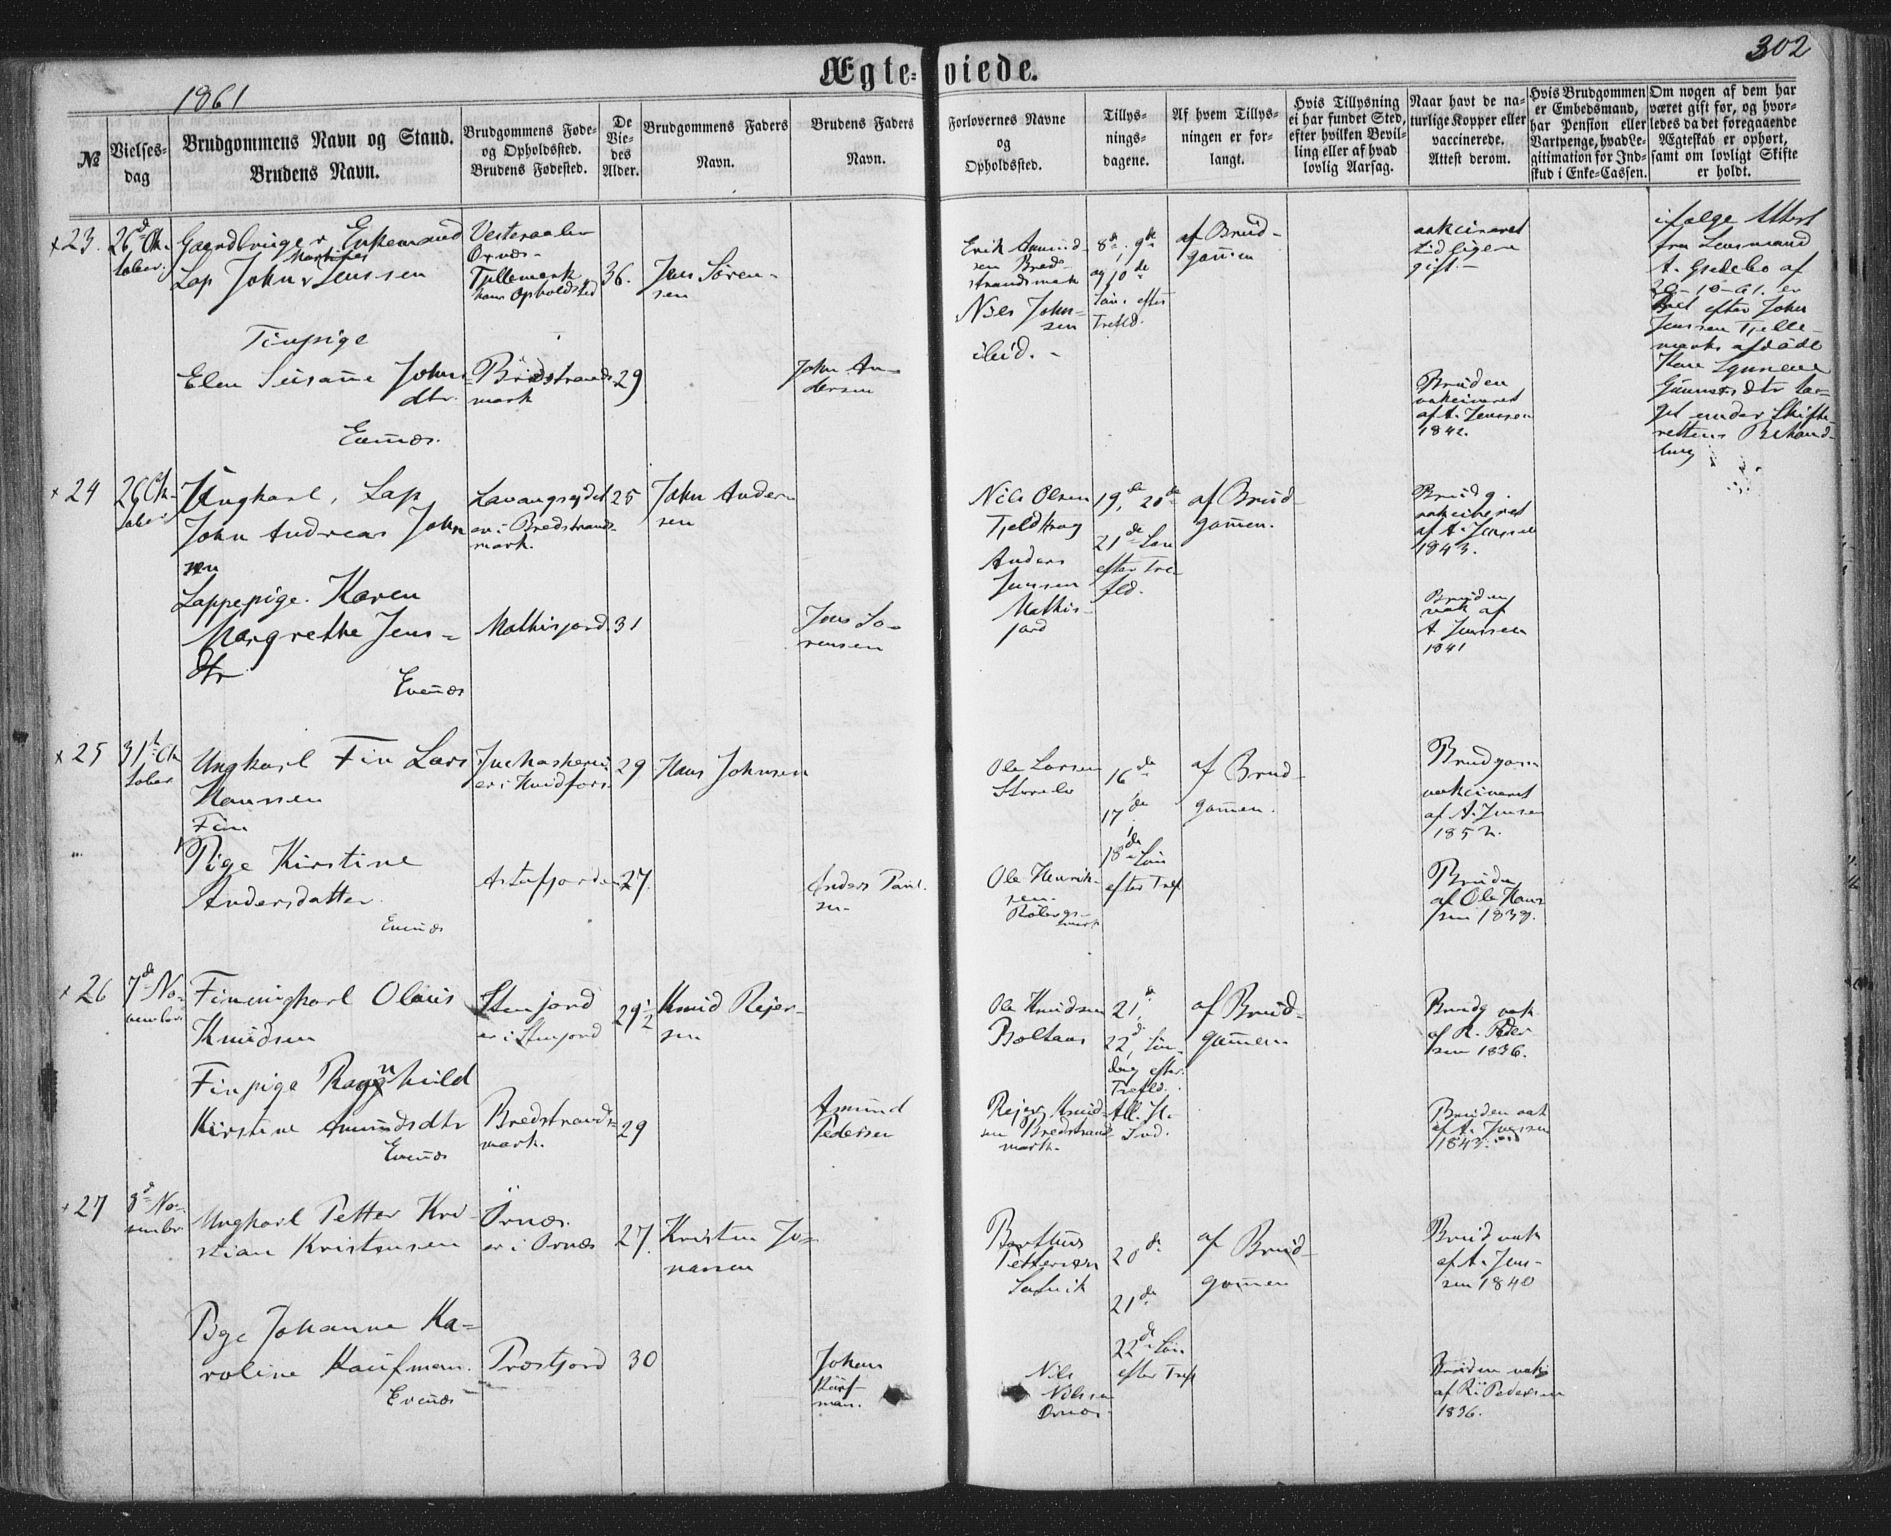 302
Ægteviede.
1861
№
Vielsesdag
Brudgommens Navn og Stand.
Brudens Navn.
Brudgommens Føde-
og Opholdssted.
Brudens Fødested.
De
Vie-
des
Alder.
Brudgommens Faders
Navn.
Brudens Faders
Navn.
Forlovernes Navne
og
Opholdssted.
Tillys-
nings-
dagene.
Af hvem Tillys-
ningen er for-
langt.
Hvis Tillysning
ei har fundet Sted,
efter hvilken Bevil-
ling eller af hvad
lovlig Aarsag.
Naar havt de na-
turlige Kopper eller
vaccinerede.
Attest derom.
Hvis Brudgommen
er Embedsmand,
har Pension eller
Vartpenge, hvad Le-
gitimation for Ind-
skud i Enke-Cassen.
Om nogen af dem har
været gift før, og hvor-
ledes da det foregaaende
Ægteskab er ophørt,
samt om lovligt Skifte
er holdt.
x 23.
26de Ok-
tober.
Gaardbruger Enkemand
Lap John Martines Jenssen
Vesteraalen
Ornæs-
Tjellemark
hans Opholdsted
36.
Jens Sören-
sen
Erik Amund-
sen Bred-
strandsmark
Niels John-
sen
ibid. -
8de, 9de
og 10de
Sön. efter
Trefld.
af Brud-
gommen
vakcineret
tidligere
gift. -
ifølge Attest
fra Lensmand
A.
20-10-61. er
Boet efter John
Jenssen Tjelle-
marks afdøde
Kone
ta-
get under Skifte-
rettens Behand-
ling
Finpige
Elen Susanne Johns
dtr.
Evenæs.
Bredstrands-
mark
29
John An-
dersen
Bruden
vakcineret
af A. Jenssen
1842.
x 24
26 Ok-
tober
Ungkarl, Lap
John Andreas John
sen
Lavangseidet
er i Bredstrands-
mark.
25
John Ander-
sen
Nils Olsen
Tjeldkrog
Anders
Jenssen
Mathis-
jord
19de, 20de
21de Sön
efter Tre-
fld.
af Brud-
gommen.
Brudg.
vakcineret
af A. Jenssen
1843.
Lappepige. Karen
Margrethe Jens-
dtr
Evenæs
Mathisjord
31
Jens Sö-
rensen
Bruden
vak af
A. Jenssen
1841
x 25
31te Ok
tober
Ungkarl Fin Lars
Hanssen
Jukkaskjervi
er i Kvidfors
29
Hans Johnsen
Ole Larsen
16de
17de
18de Sön
efter Tref
af Brud-
gommen.
Brudgom
vakcineret
af A. Jensen
1852.
Fin
Pige Kirstine
Andersdatter.
Evenæs
Astafjorden
27.
Anders Paul-
sen-
Ole Henrik-
sen.
Bruden
af Ole Hans
sen 1839.
x 26
7de No-
vember
Finungkarl Olaus
Knudsen
Stenjord
er i Stenjord
29½
Knud Rejer-
sen
Ole Knudsen
Boltaas
21de,
22de, Sön-
dag efter
Trefld.
af Brud-
gommen
Brudg vak
af R. Peder
sen 1836.
Finpige Ragnhild
Kirstine Amundsdtr
Evenæs
Bredstrands-
mark.
29
Amund
Pedersen
Rejer Knud-
sen Bredstrand
mark.
Brüden vak
af A. Jenssen
x 27
8de No-
vember
Ungkarl Petter Kri-
stian Kristensen
Örnæs.
er i Ornæs
27.
Kristen Jo-
nassen
Berthus
Pettersen
20de
21de
22de Sön
efter Tref
af Brud-
gommen
Brud vak
af A. Jens-
sen 1840
Pige Johanne Ka-
roline Kaufman.
Evenæs
Præstjord
30
Johan
Kauf-
man.
Nils
Nilsen
Ornæs.
Bruden vak
af R. Pedersen
1836.